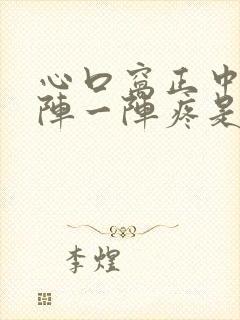 心口窝正中
陣一陣疼是
李煌